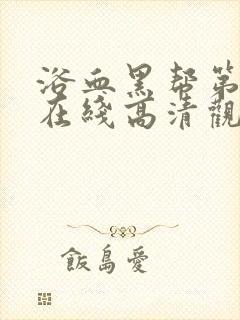 浴血黑帮第
在綫高清觀
飯島愛